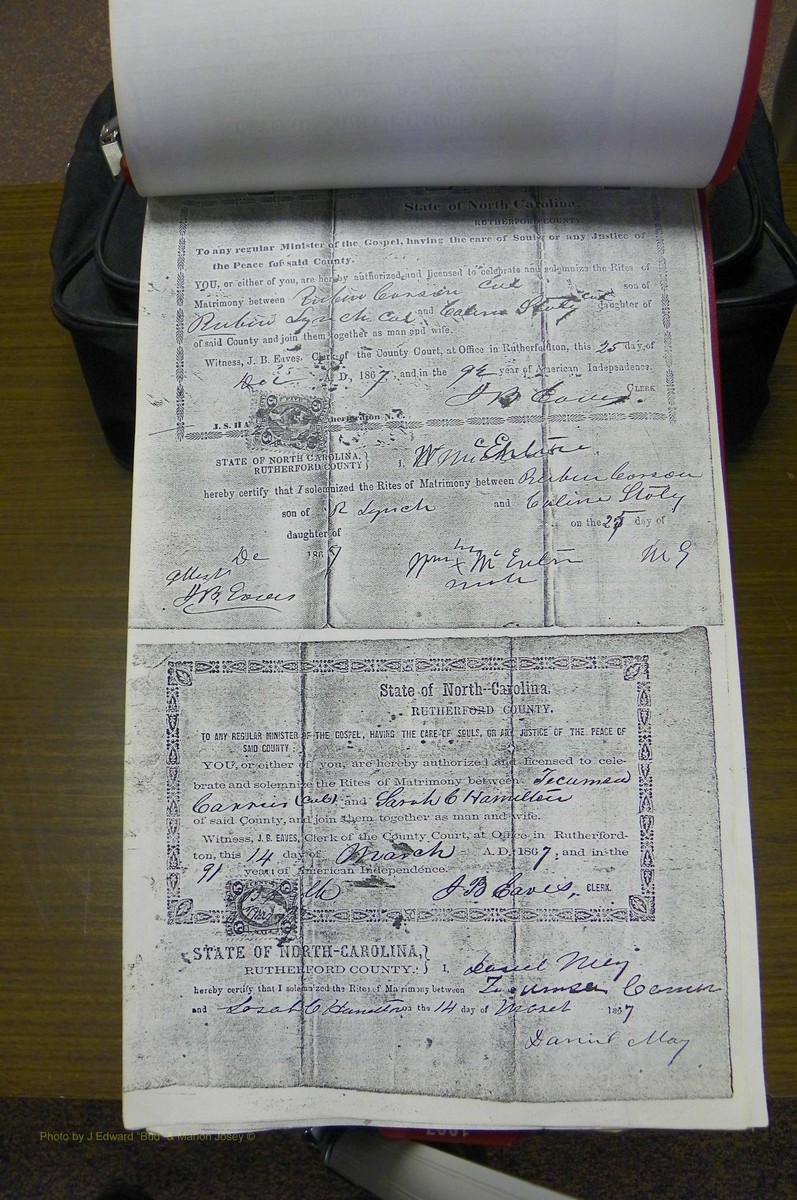 State of North Carolina,
RUTHERFORD COUNTY
To any regular Minister of the Gospel, having the care of Souls or any Justice of
the Peace for said County.
YOU, or either of you, are hereby authorized and licensed to celebrate and solemnize the Rites of
Matrimony between Rubin Corson Col son of
Rubin Lynch Col and Caline Stoty Col daughter of
of said County and join them together as man and wife.
Witness, J. B. Eaves, Clerk of the County Court, at Office in Rutherfordton, this 25 day of
A. D., 1867, and in the 92 year of American Independence.
J B Eaves. CLERK
J. S. HA
STATE OF NORTH CAROLINA,
RUTHERFORD COUNTY I, W
hereby certify that I solemnized the Rites of Matrimony between Rubin Corson
son of R Lynch and Caline Stoty
daughter of on the 25 day of
De 1867
Wm M G
J.B. Eaves
State of North-Carolina,
RUTHERFORD COUNTY.
TO ANY REGULAR MINISTER OF THE GOSPEL, HAVING THE CARE OF SOULS, OR ANY JUSTICE OF THE PEACE OF
SAID COUNTY:
YOU, or either of you, are hereby authorized and licensed to cele-
brate and solemnize the Rites of Matrimony between Tecumseu
(Col) and Sarah C Hamilton
of said County, and join them together as man and wife.
Witness, J. B. EAVES, Clerk of the County Court, at Office in Rutherford-
ton, this 14 day of March A. D. 1867; and in the
91 year of American Independence.
J B Eaves, CLERK.
STATE OF NORTH-CAROLINA,
RUTHERFORD COUNTY. I, Daniel May
hereby certify that I solemnized the Rites of Matrimony between
and Sarah C Hamilton the 14 day of March 1867
Daniel May
Photo by J Edward "Bud" & Marion Josey ©